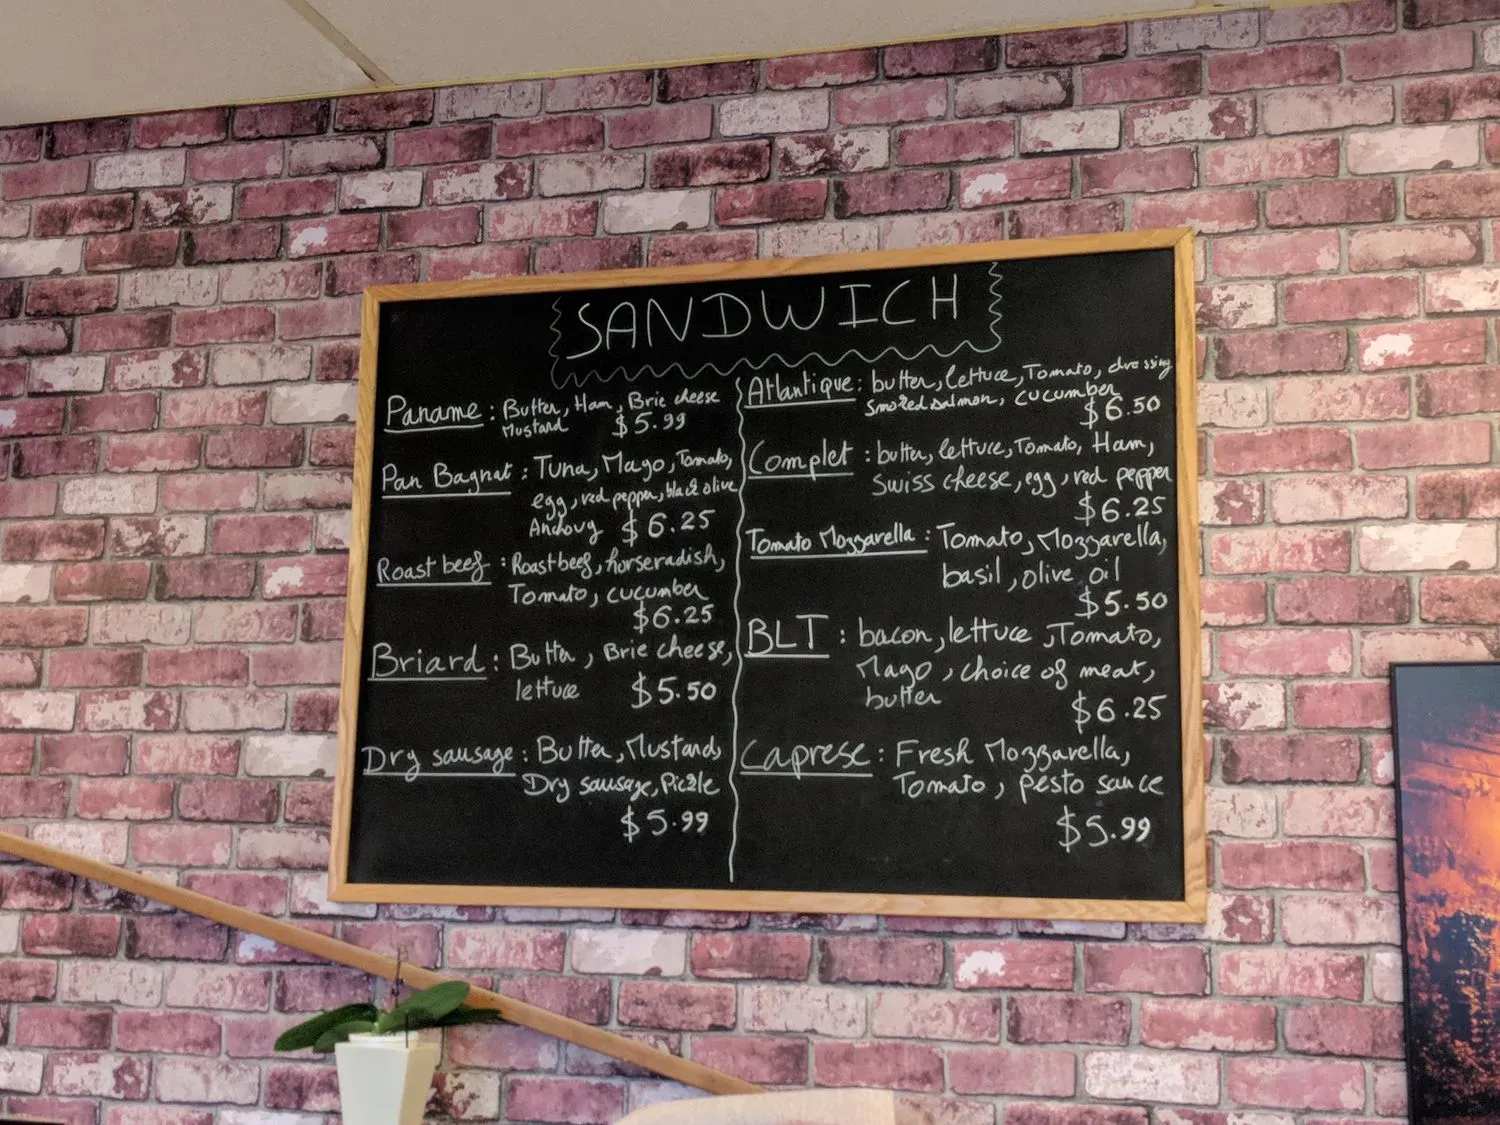 SANDWICH
Paname : Butter, Ham, Brie cheese
Mustard $5.99
Pan Bagnat : Tuna, Mayo, Tomato,
egg, red pepper, black olive
Anchovy $6.25
Roast beef : Roastbeef, horseradish,
Tomato, cucumber
$6.25
Briard : Butter, Brie cheese,
lettuce $5.50
Dry sausage : Butter, Mustard,
Dry sausage, Pickle
$5.99
Atlantique : butter, lettuce, Tomato, dressing
Smoked salmon, cucumber
$6.50
Complet : butter, lettuce, Tomato, Ham,
swiss cheese, egg, red pepper
$6.25
Tomato Mozzarella : Tomato, Mozzarella,
basil, olive oil
$5.50
BLT : bacon, lettuce, Tomato,
Mayo, choice of meat,
butter
$6.25
Caprese : Fresh Mozzarella,
Tomato, pesto sauce
$5.99